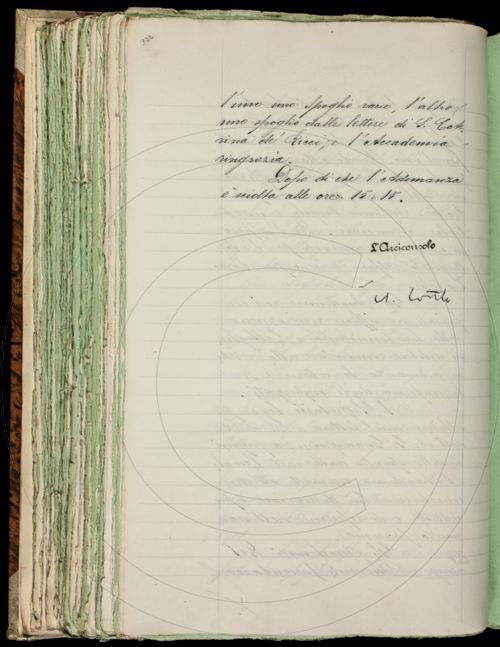 322
l'uno uno spoglio vario, l'altro
uno spoglio dalle lettere di S. Cate-
rina de' Ricci, e l'Accademia
ringrazia.
Dopo di che l'Adunanza
è sciolta alle ore 15.15.
L'Arciconsolo